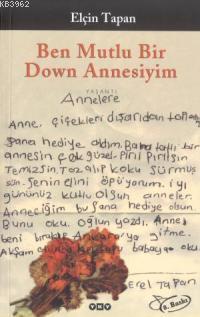 Elçin Tapan
Ben Mutlu Bir
Down Annesiyim
YAŞANTI
Annelere
Anne, çiçekleri dışarıdan
Sana hediye aldım. Bana tatlı bir
annesin çok güzel. Pırıl Pırılsın
Temizsin. Toz alıp koku sürmüş
sün. Senin elini öpüyorum. iyi
gününüz kutlu olsun anneler.
Anneciğim bu sana hediye olsun.
Bunu oku. Oğlun yazdı. Anne
beni bırakıp Ankara'ya gitme.
Akşam
Erel Tapan
8. Baskı
YKY